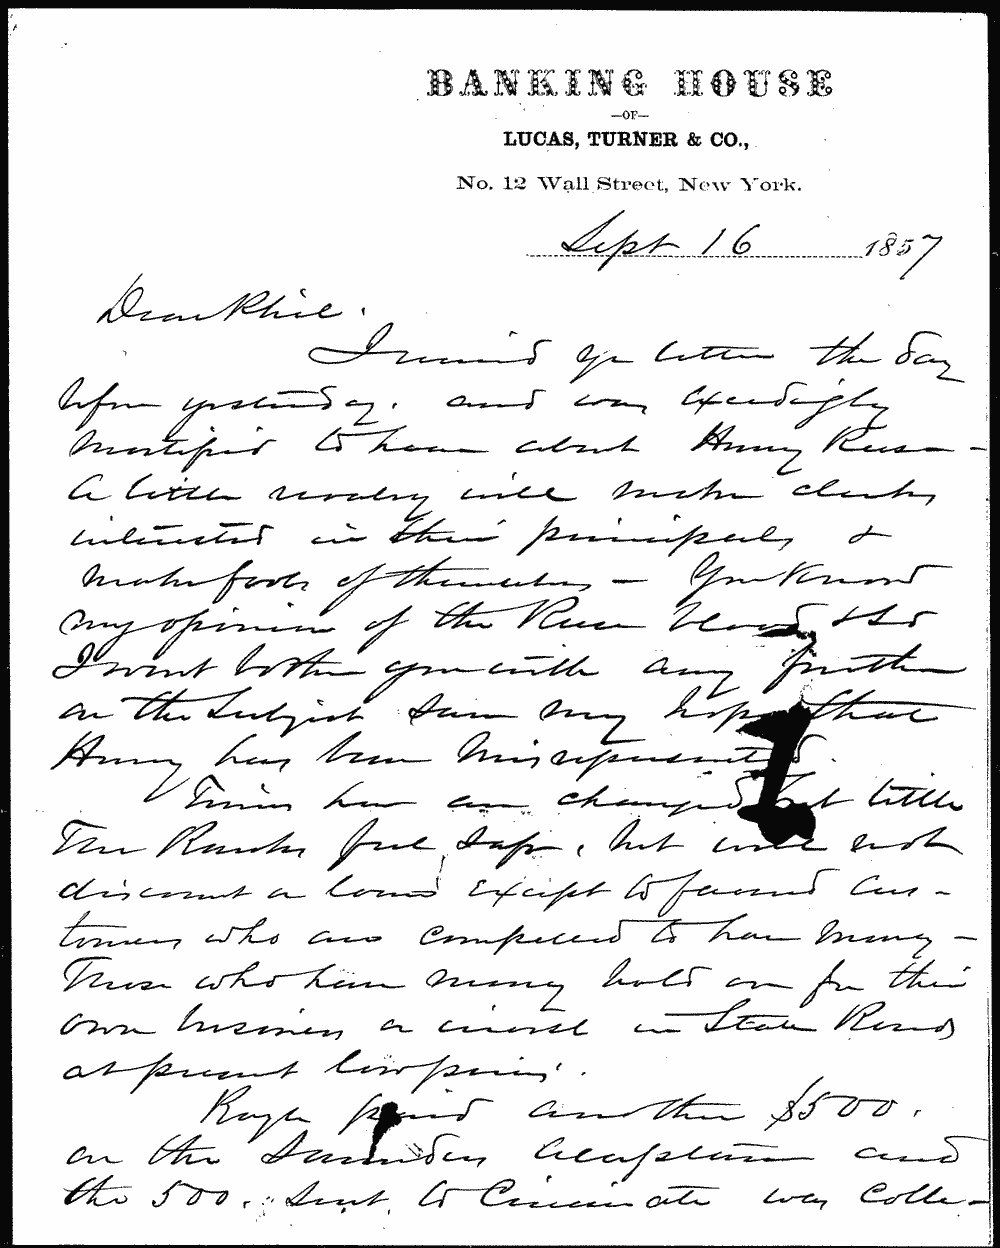 BANKING HOUSE
—OF—
LUCAS, TURNER & CO.,
No. 12 Wall Street, New York.
Sept 16 1857
Dear Phil.
I received yr letter the day
before yesterday. and was exceedingly
mortified to hear about Henry Reese –
A little rivalry will make clerks
interested in their principals &
make fools of themselves – You Know
my opinion of the Reese blood & so
I wont bother you with any further
on the Subject save my hope that
Henry has been misrepresented.
Times here are changed but little
The Banks feel safe, but will not
discount or loan except to favored cus-
tomers who are compelled to have money –
Those who have money hold on for their
own business or invest in State Bonds
at present low prices.
paid another $500.
on the Saunders acceptance and
the 500. sent to Cincinnati was colle-